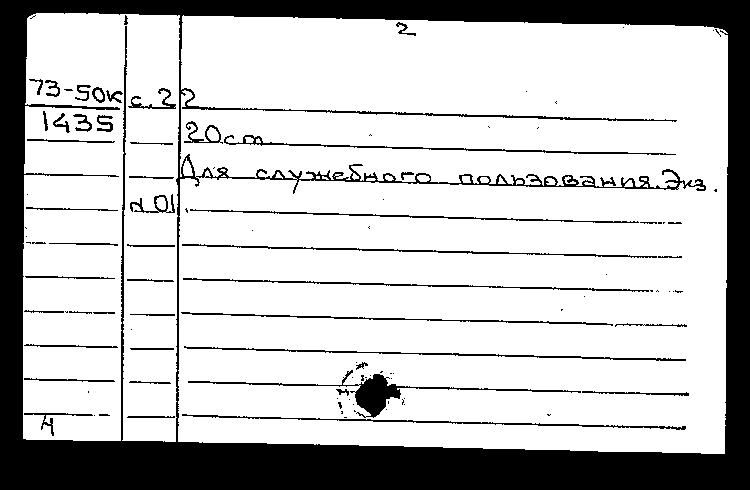 2
73-50к с. 22
1435
20см
Для служебного пользования. Экз.
d 01.
н